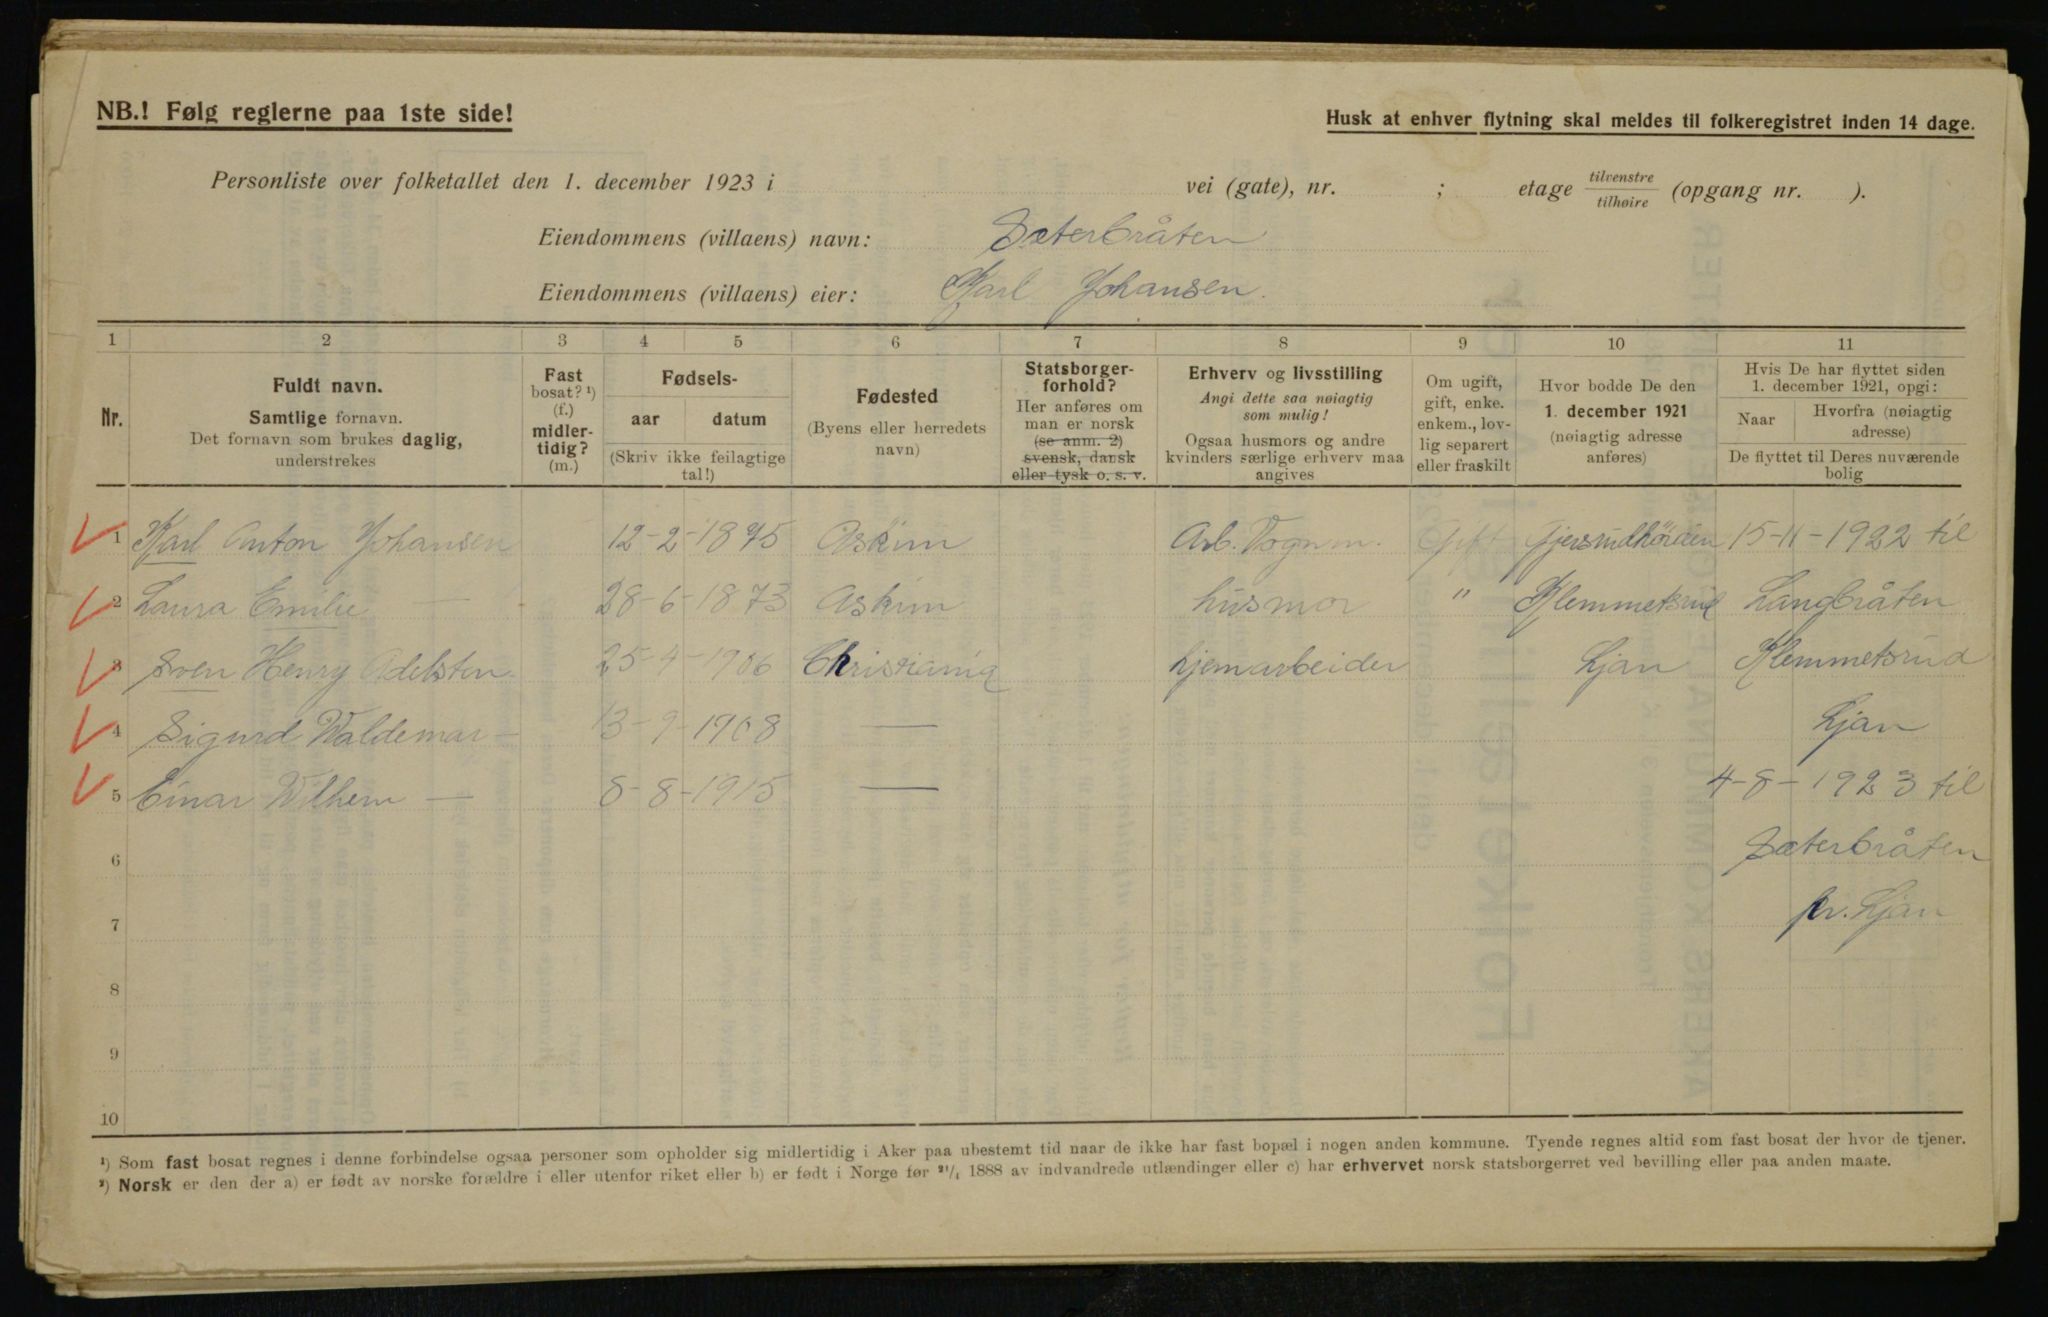 NB.! Følg reglerne paa 1ste side!
Husk at enhver flytning skal meldes til folkeregistret inden 14 dage.
Personliste over folketallet den 1. december 1923 i vei (gate), nr. ; etage tilvenstre / tilhøire (opgang nr. ).
Eiendommens (villaens) navn: Sæterbråten
Eiendommens (villaens) eier: Karl Johansen.
1 2 3 4 5 6 7 8 9 10 11
Nr.
Fuldt navn.
Samtlige fornavn.
Det fornavn som brukes daglig,
understrekes
Fast
bosat? ¹)
(f.)
midler-
tidig?
(m.)
Fødsels-
aar datum
(Skriv ikke feilagtige
tal!)
Fødested
(Byens eller herredets
navn)
Statsborger-
forhold?
Her anføres om
man er norsk
(se anm. 2)
svensk, dansk
eller tysk o. s. v.
Erhverv og livsstilling
Angi dette saa nøiagtig
som mulig!
Ogsaa husmors og andre
kvinders særlige erhverv maa
angives
Om ugift,
gift, enke.
enkem., lov-
lig separert
eller fraskilt
Hvor bodde De den
1. december 1921
(nøiagtig adresse
anføres)
Hvis De har flyttet siden
1. december 1921, opgi:
Naar
Hvorfra (nøiagtig
adresse)
De flyttet til Deres nuværende
bolig
1 Karl Anton Johansen 12-2-1875 Askim Arb. Vognm. Gift Gjersrudhörden 15-11-1922 til
2 Laura Emilie — 28-6-1873 Askim husmor " Klemmetsrud Langbråten
3 Sven Henry Adelsten 25-4-1906 Christiania hjemarbeider Ljan Klemmetsrud
4 Sigurd Waldemar — 13-9-1908 — Ljan
5 Einar Wilhem — 8-8-1915 — 4-8-1923 til
6 Sæterbråten
7 pr. Ljan
8
9
10
¹) Som fast bosat regnes i denne forbindelse ogsaa personer som opholder sig midlertidig i Aker paa ubestemt tid naar de ikke har fast bopæl i nogen anden kommune. Tyende regnes altid som fast bosat der hvor de tjener.
²) Norsk er den der a) er født av norske forældre i eller utenfor riket eller b) er født i Norge før ²¹/₁ 1888 av indvandrede utlændinger eller c) har erhvervet norsk statsborgerret ved bevilling eller paa anden maate.